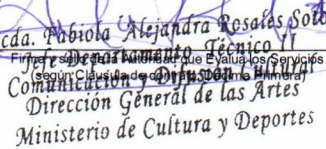 cda. Fabiola Alejandra Rosales Soto
Jefe Departamento Técnico II
Firma y sello de la Autoridad que Evalúa los Servicios
(según Cláusula de contrato Décima Primera)
Comunicación y Difusión Cultural
Dirección General de las Artes
Ministerio de Cultura y Deportes